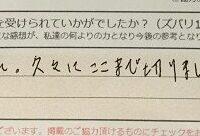 を受けられていかがでしたか？（ズバリ1
な感想が、私達の何よりの力となり今後の参考となり
。久々にここまで切りまし
ございます。掲載のご協力頂けるものにチェックを